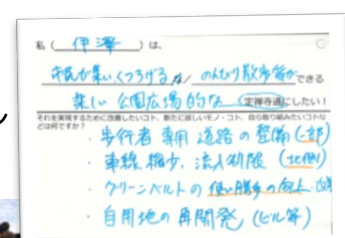 私（ 伊澤 ）は、
市民が集い、くつろげる / のんびり散歩等ができる
楽しい 公園広場的な 定禅寺通にしたい！
それを実現するために改善したいコト、新たに欲しいモノ・コト、自ら取り組みたいコトな
どは何ですか？
・歩行者専用道路の整備（一部）
・車線縮少、流入制限（北側）
・グリーンベルトの使い勝手の向上、
・自用地の再開発（ビル等）